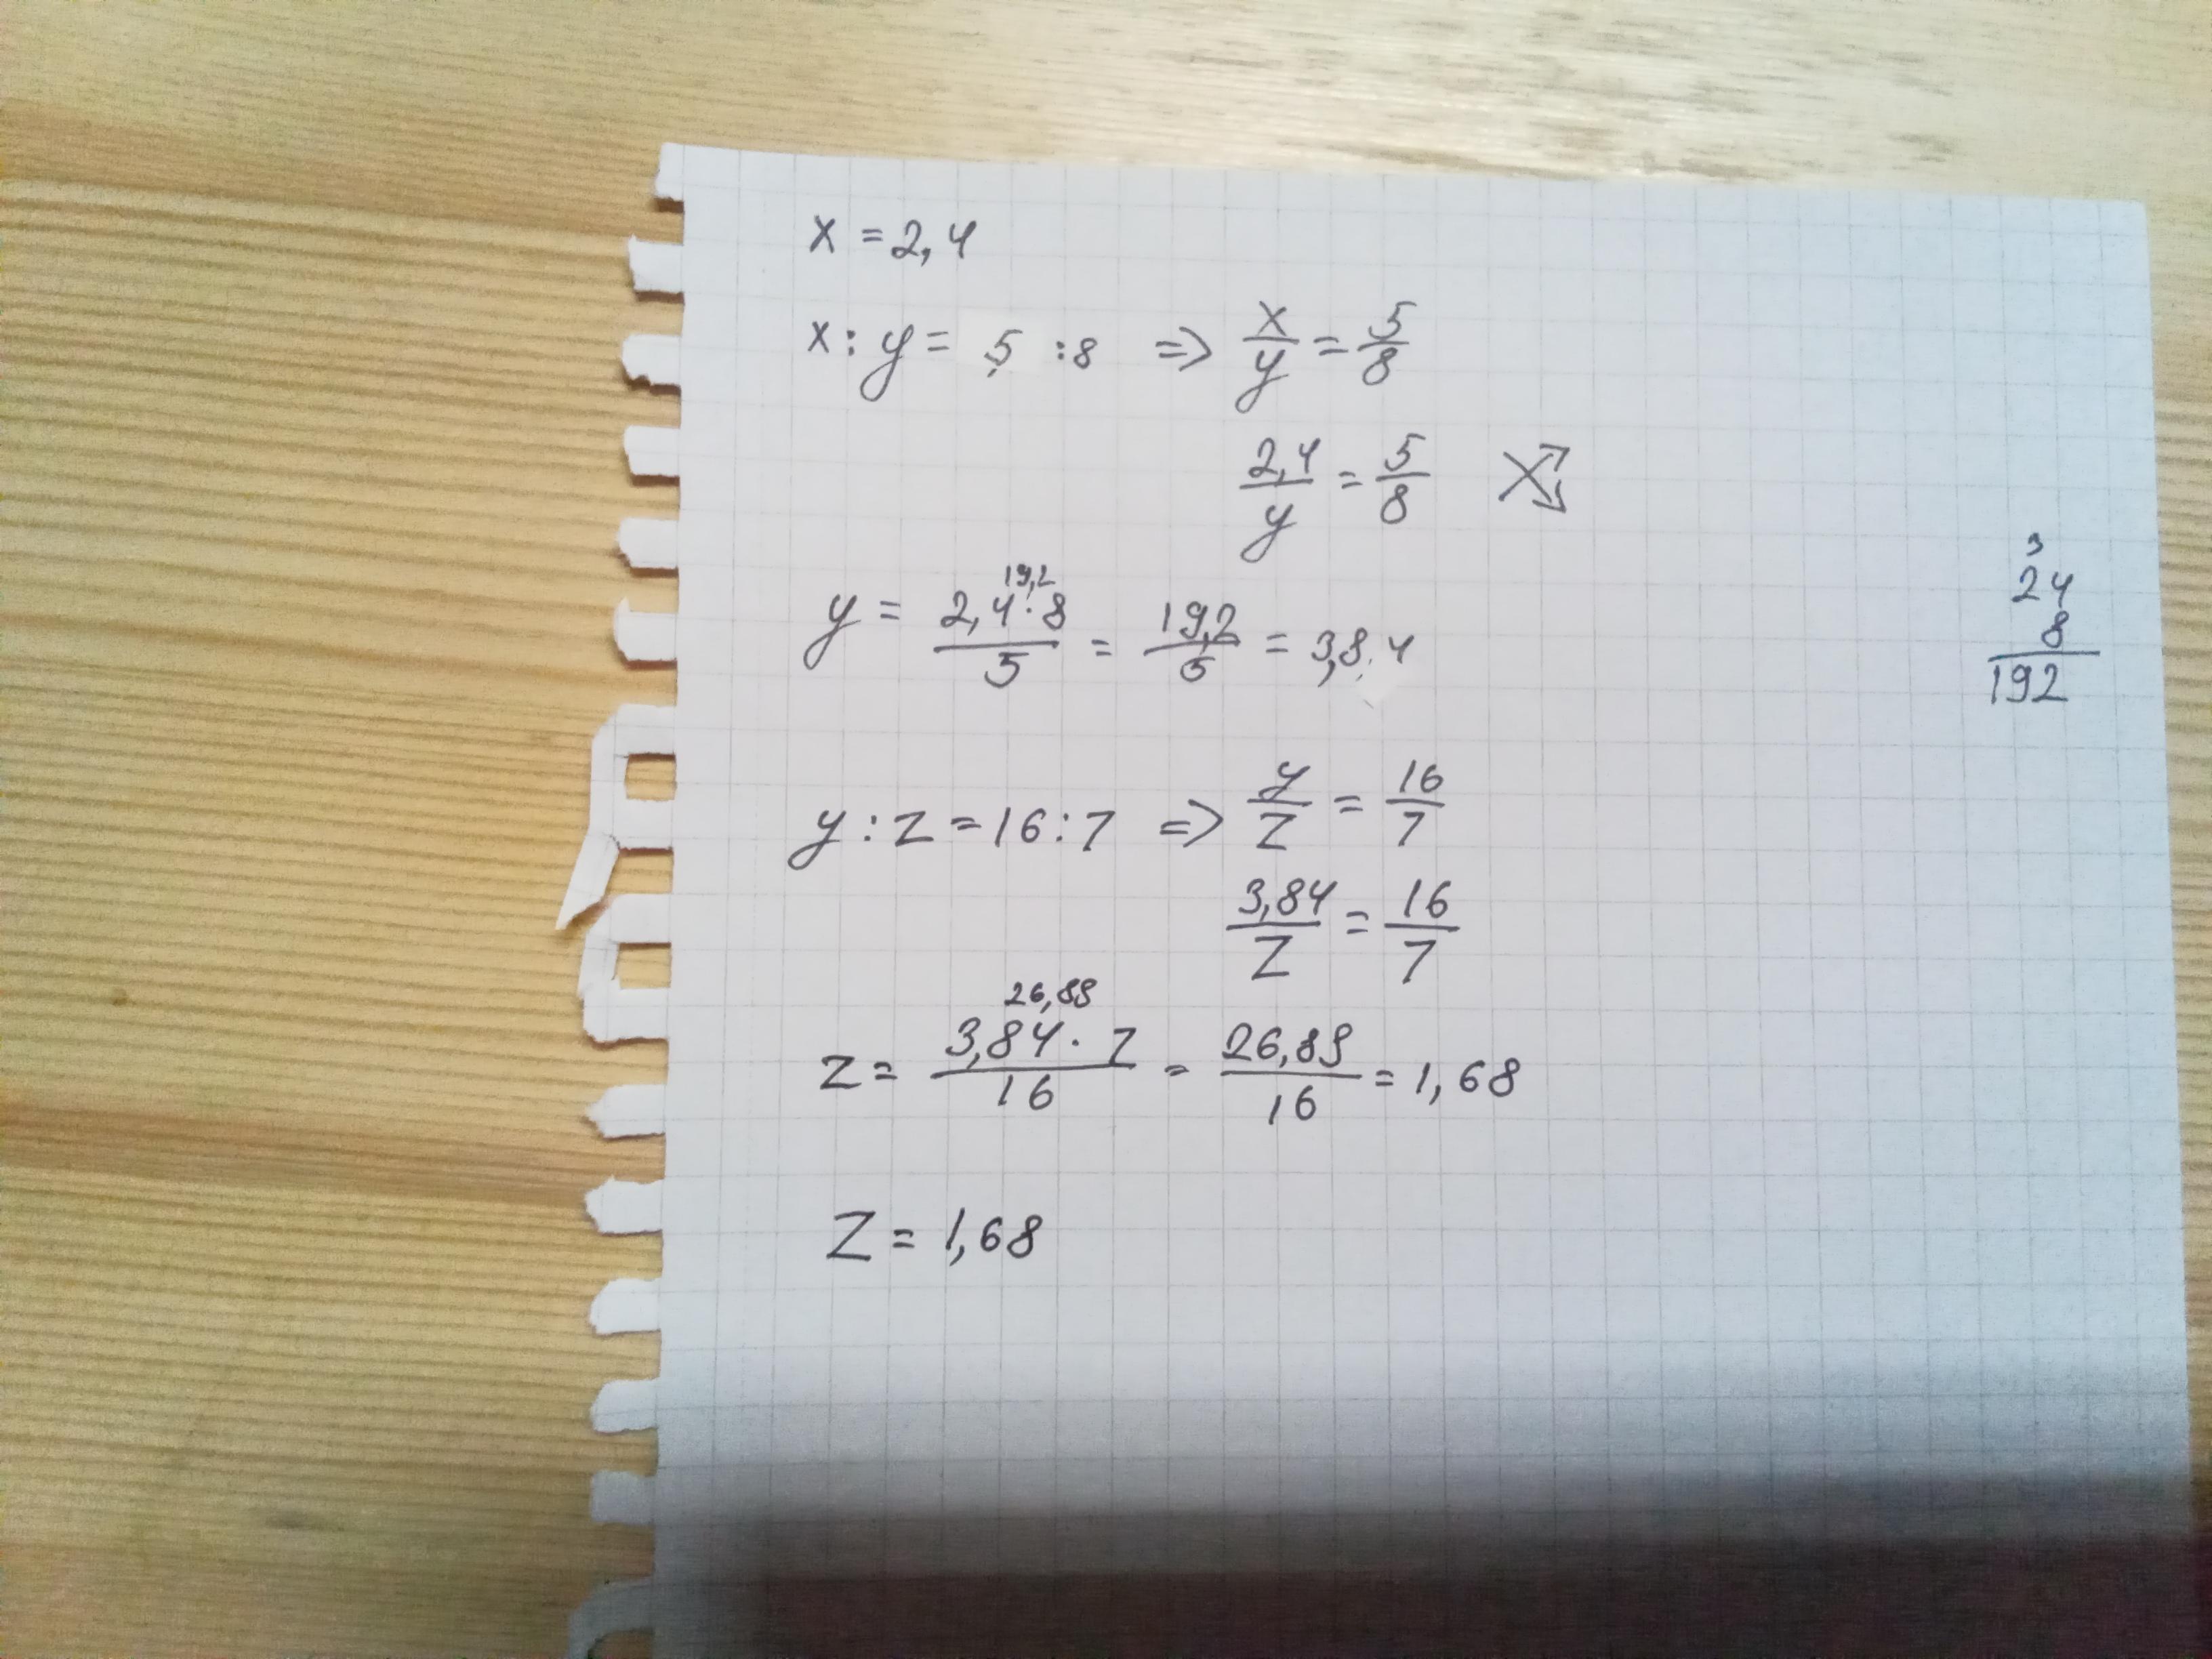 x = 2,4
x : y = 5 : 8 => x/y = 5/8
2,4/y = 5/8
19,2
y = 2,4 · 8/5 = 19,2/5 = 3,84
3
24
8
192
y : z = 16 : 7 => y/z = 16/7
3,84/z = 16/7
26,88
z = 3,84 · 7/16 = 26,88/16 = 1,68
z = 1,68